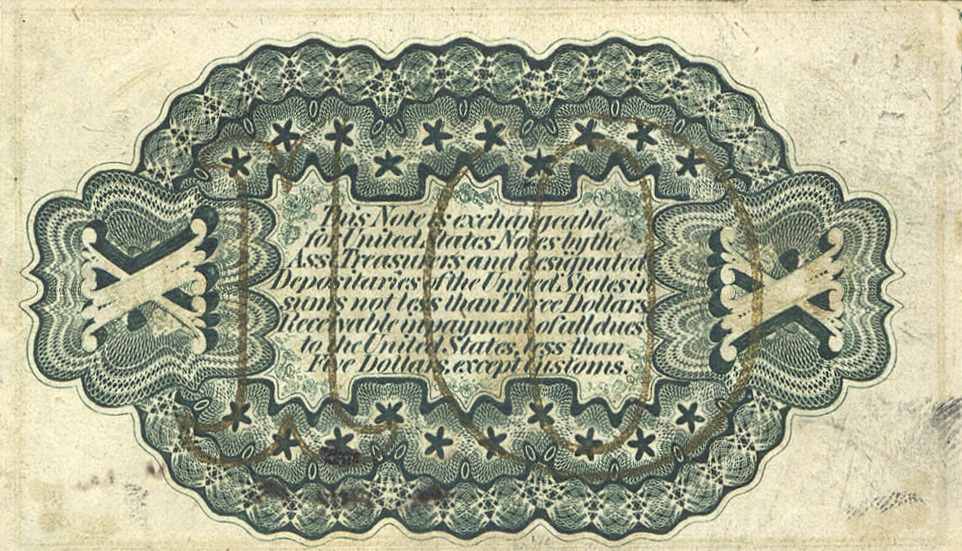 This Note is exchangeable
for United States Notes by the
Asst. Treasurers and designated
Depositaries of the United States in
sums not less than Three Dollars
Receivable in payment of all dues
to the United States, less than
Five Dollars, except Customs.
X X
10